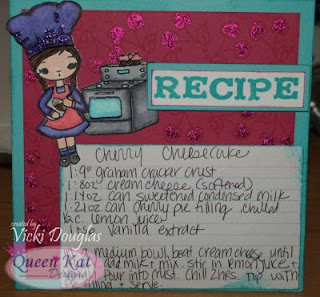 RECIPE
Cherry Cheesecake
1 · 9" graham cracker crust
1 · 8oz cream cheese (softened)
1 14oz can sweetened condensed milk
1 · 21oz can cherry pie filling, chilled
c. lemon juice
vanilla extract
medium bowl, beat cream cheese until
add milk & mix. Stir in lemon juice &
pour into crust. chill 2hrs. Top with
filling & serve.
created by
Vicki Douglas
Queen Kat
Designs